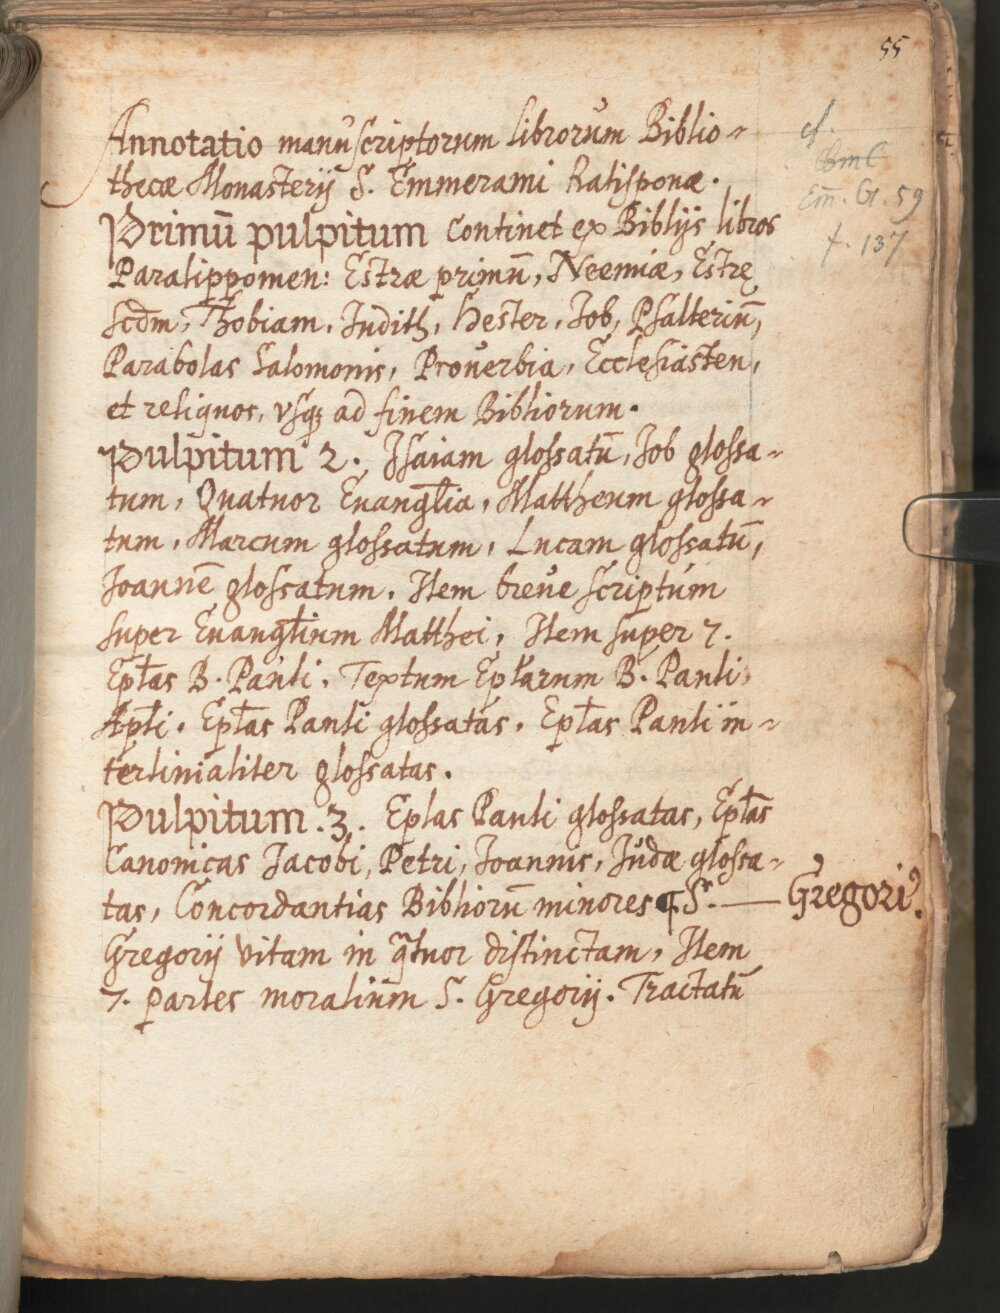 55
Annotatio manuscriptorum librorum Biblio-
thecæ Monasterij S. Emmerami Ratisponæ.
Primū pulpitum continet ex Biblijs libros
Paralippomen: Estræ primū, Neemiæ, Estrę
scdm, Thobiam, Iudith, Hester, Iob, Psalteriū,
Parabolas Salomonis, Prouerbia, Ecclesiasten,
et reliquos, vsq3 ad finem Bibliorum.
Pulpitum 2. Isaiam glossatū, Iob glossa-
tum, Quatuor Euangl̄ia, Mattheum glossa-
tum, Marcum glossatum, Lucam glossatū,
Ioannē glossatum. Item breue scriptum
super Euangl̄ium Matthei, Item super 7.
Epl̄as B. Pauli. Textum Epl̄arum B. Pauli
Apl̄i. Epl̄as Pauli glossatas. Epl̄as Pauli in-
terliniāliter glossatas.
Pulpitum .3. Eplas Pauli glossatas, Epl̄as
Canonicas Jacobi, Petri, Ioannis, Iudæ glossa-
tas, Concordantias Bibliorū minores ¶ Sͥ. — Gregoriꝰ.
Gregorij vitam in q̄tuor distinctam, Item
7. partes moralium S. Gregorij. Tractatū
cf.
BmC
Em̄. G. 59
f. 137